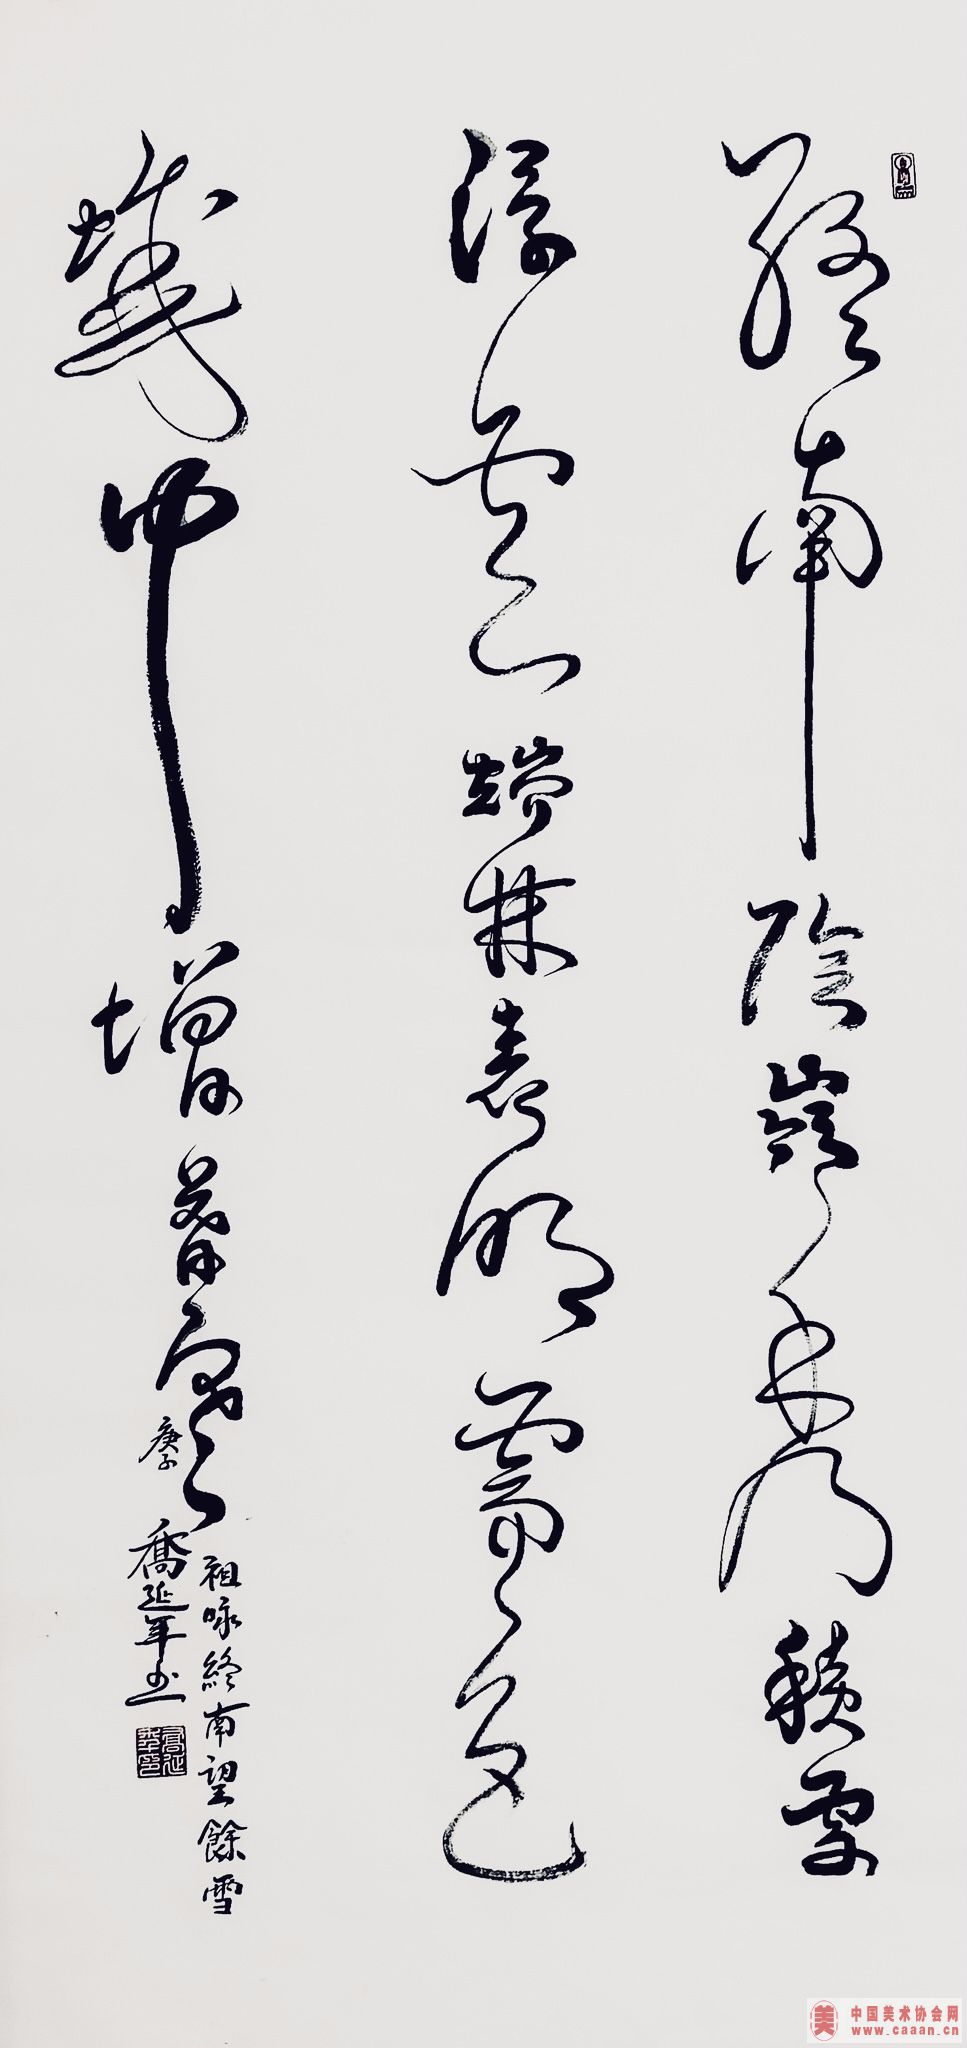 終南陰嶺秀積雪
浮雲端林表明霽色
城中增暮寒
祖咏終南望餘雪
庚子 喬延年书
喬延年印
中国美术协会网
www.caaan.cn
美